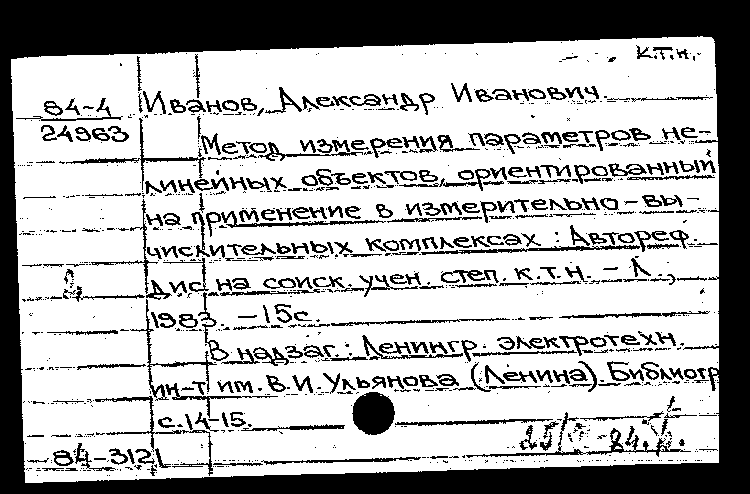 К.Т.Н.
84-4
24963
Иванов, Александр Иванович.
Метод измерения параметров не-
линейных объектов, ориентированный
на применение в измерительно-вы-
числительных комплексах : Автореф.
дис на соиск. учен. степ. к.т.н. - Л.,
2,
1983. - 15с.
В надзаг.: Ленингр. электротехн.
ин-т им. В.И. Ульянова (Ленина). Библиогр
с. 14-15.
84-3121